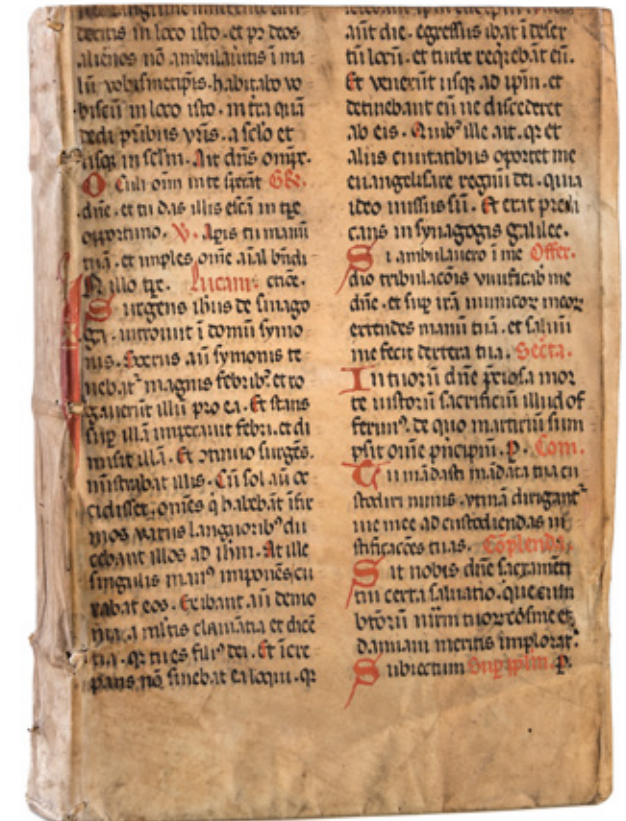 decitis in loco isto. et pꝰ deos
alienos nō ambulaūitis ī ma
lū vobismetip̄is. habitabo vo
biscū in loco isto. in t̄ra quā
dedi pr̄ibus vr̄is. a sc̄lo et
usq̨ in sc̄lm. Ait dn̄s omp̄s.
Oculi oīm in te sperāt Gr̄.
dn̄e. et tu das illis escā in tp̄e
opportuno. V. Apis tu manū
tuā. et imples om̄e aīal bn̄di
In illo tp̄e. Lucam. ctiōe.
Surgens ih̄us de sinago
ga. introiuit ī domū symo
nis. Socrus aū symonis te
nebat᷑ magnis febribꝰ. et ro
gauerūt illū pro ea. Et stans
sup̄ illā imperauit febri. et di
misit illā. Et ꝯtinuo surgēs.
mīstrabat illis. Cū sol aū oc
cidisset. omēs q̇ habebāt īfir
mos variis languoribꝰ du
cebant illos ad ih̄m. At ille
singulis manꝰ imponēs cu
rabat eos. Exibant aū demo
nia a mltis clamātia et dicē
tia. qꝛ tu es filiꝰ dei. Et īcre
pans nō sinebat ea loqui. qꝛ
aūt die. egressus ibat ī deser
tū locū. et turbe reqͥrebāt eū.
Et venerūt usq̨ ad ip̄m. et
detinebant eū ne discederet
ab eis. Quibꝰ ille ait. qꝛ et
aliis ciuitatibus oportet me
euangelisare regnū dei. quia
ideo missus sū. Et erat predi
cans in synagogis galilee.
Si ambulauero ī me Offer.
dio tribulacōis viuificab me
dn̄e. et sup̄ irā inimicoꝝ meoꝝ
extendes manū tuā. et saluū
me fecit dextera tua. Secͣta.
In tuorū dn̄e p̄ciosa mor
te iustorū sacrificiū illud of
ferimꝰ. de quo martiriū sum
psit om̄e pͥncipiū. P. Com.
Tu mādasti mādata tua cu
stodiri nimis. vtinā dirigant᷑
uie mee ad custodiendas iu
stificacōes tuas. Cōplenda.
Sit nobis dn̄e sacramēti
tui certa saluatio. que cum
btōrū nr̄m tuoꝝ cosme et
damiani meritis implorat᷑.
Subiectum Sup̄ ip̄lm P.